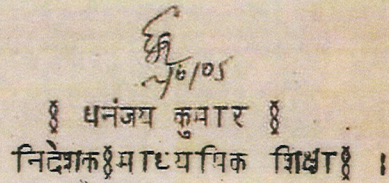 § धनंजय कुमार §
निदेशक§माध्यमिक शिक्षा§ ।